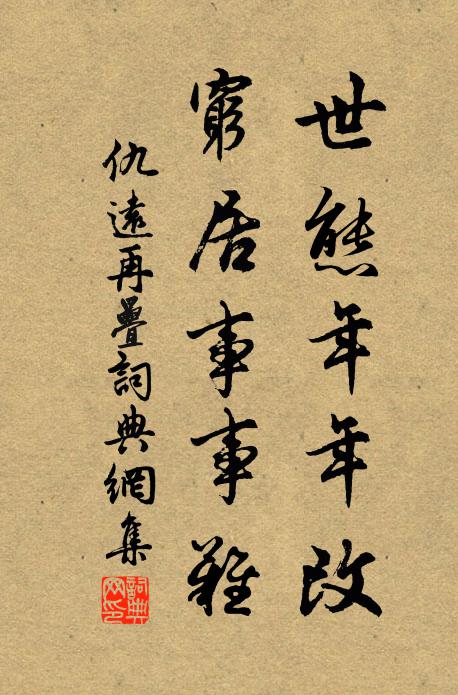 世態年年改
窮居事事難
仇遠再疊詞典網集
詞典網印